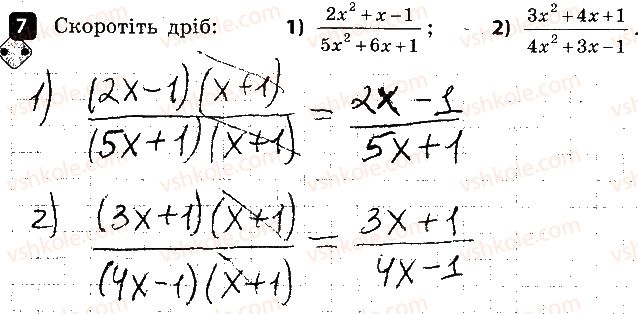 7 Скоротіть дріб: 1) (2x² + x − 1)/(5x² + 6x + 1) ; 2) (3x² + 4x + 1)/(4x² + 3x − 1) .
1) ((2x−1)(x+1))/((5x+1)(x+1)) = (2x−1)/(5x+1)
2) ((3x+1)(x+1))/((4x−1)(x+1)) = (3x+1)/(4x−1)